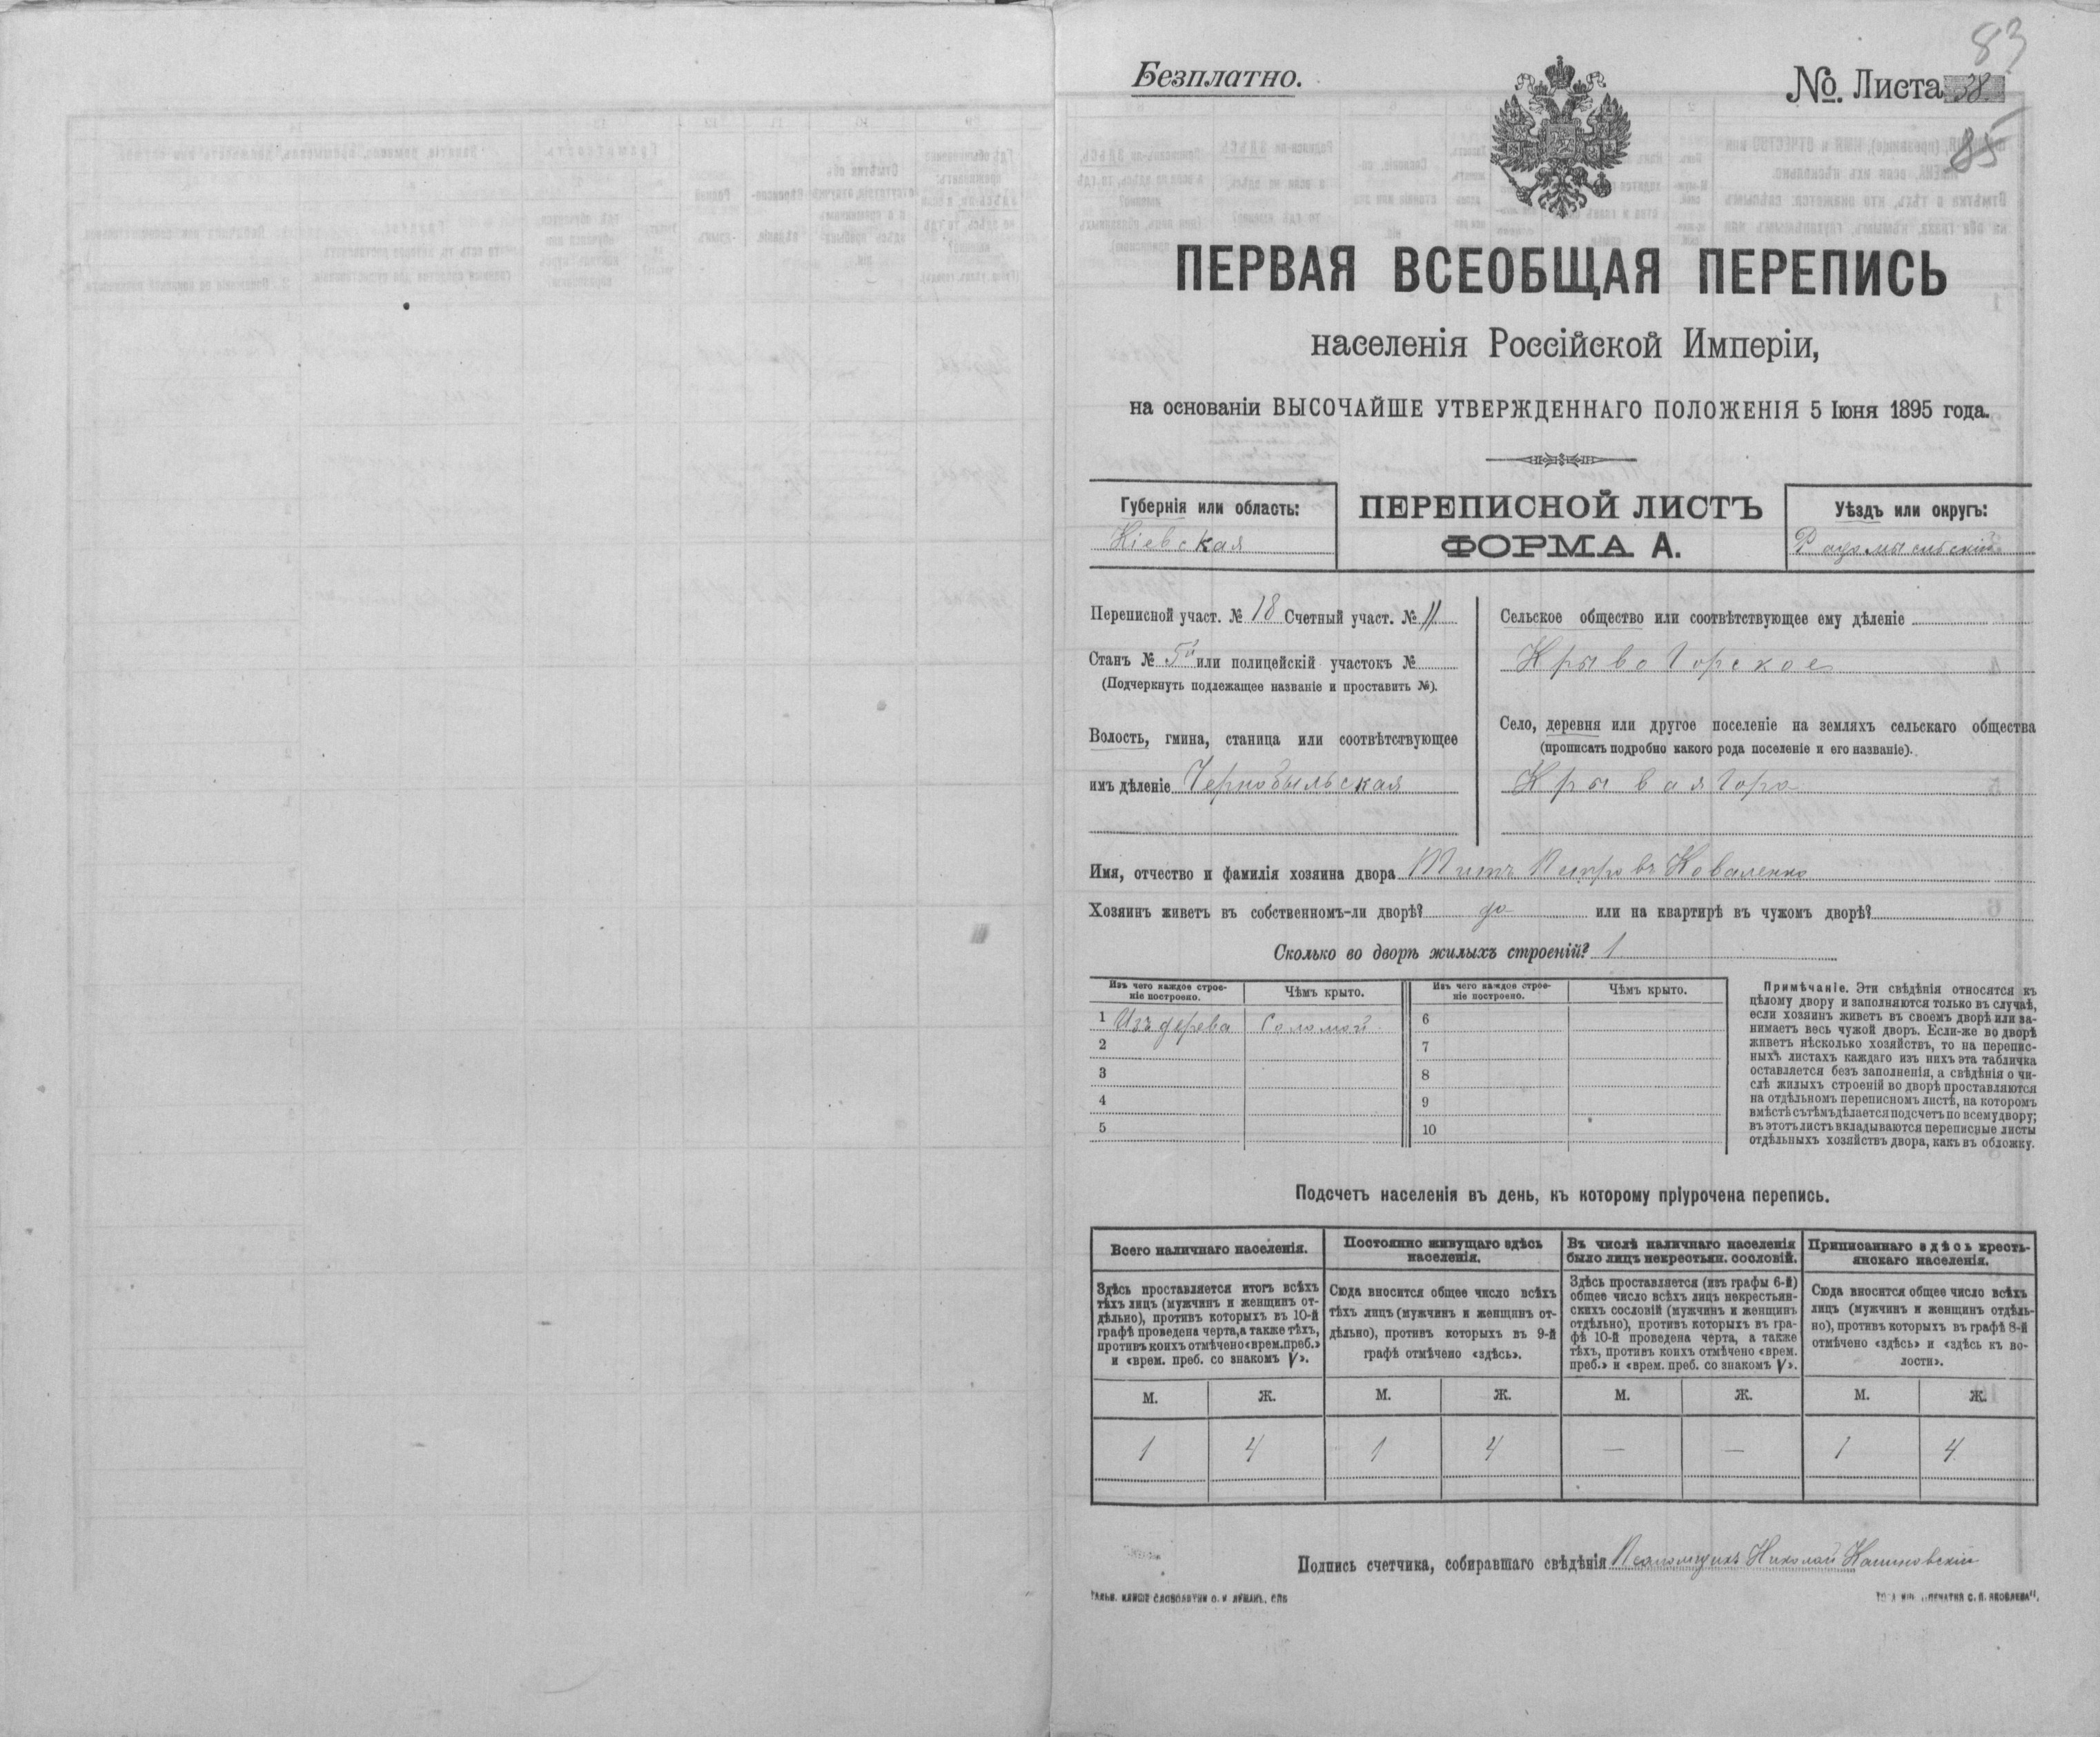 83
Безплатно.
№. Листа 38
85
ПЕРВАЯ ВСЕОБЩАЯ ПЕРЕПИСЬ
населенія Россійской Имперіи,
на основаніи ВЫСОЧАЙШЕ УТВЕРЖДЕННАГО ПОЛОЖЕНІЯ 5 Іюня 1895 года.
Губернія или область:
Кіевская
ПЕРЕПИСНОЙ ЛИСТЪ
ФОРМА А.
Уѣздъ или округъ:
Радомысльскій
Переписной участ. № 18 Счетный участ. № 11
Станъ № 5й или полицейскій участокъ №
(Подчеркнуть подлежащее названіе и проставить №).
Волость, гмина, станица или соотвѣтствующее
имъ дѣленіе Чернобыльская
Сельское общество или соотвѣтствующее ему дѣленіе
Крыво Горское
Село, деревня или другое поселеніе на земляхъ сельскаго общества
(прописать подробно какого рода поселеніе и его названіе).
Крывая Гора
Имя, отчество и фамилія хозяина двора Титъ Петровъ Коваленко
Хозяинъ живетъ въ собственномъ-ли дворѣ? да или на квартирѣ въ чужомъ дворѣ?
Сколько во дворѣ жилыхъ строеній? 1
Изъ чего каждое строе-
ніе построено.
Чѣмъ крыто.
Изъ чего каждое строе-
ніе построено.
Чѣмъ крыто.
1 Изъ дерева Соломой 6
2 7
3 8
4 9
5 10
Примѣчаніе. Эти свѣдѣнія относятся къ
цѣлому двору и заполняются только въ случаѣ,
если хозяинъ живетъ въ своемъ дворѣ или за-
нимаетъ весь чужой дворъ. Если-же во дворѣ
живетъ нѣсколько хозяйствъ, то на перепис-
ныхъ листахъ каждаго изъ нихъ эта табличка
оставляется безъ заполненія, а свѣдѣнія о чи-
слѣ жилыхъ строеній во дворѣ проставляются
на отдѣльномъ переписномъ листѣ, на которомъ
вмѣстѣ съ тѣмъ дѣлается подсчетъ по всему двору;
въ этотъ листъ вкладываются переписные листы
отдѣльныхъ хозяйствъ двора, какъ въ обложку.
Подсчетъ населенія въ день, къ которому пріурочена перепись.
Всего наличнаго населенія.
Здѣсь проставляется итогъ всѣхъ
тѣхъ лицъ (мужчинъ и женщинъ от-
дѣльно), противъ которыхъ въ 10-й
графѣ проведена черта, а также тѣхъ,
противъ коихъ отмѣчено «врем. преб.»
и «врем. преб. со знакомъ V».
Постоянно живущаго здѣсь
населенія.
Сюда вносится общее число всѣхъ
тѣхъ лицъ (мужчинъ и женщинъ от-
дѣльно), противъ которыхъ въ 9-й
графѣ отмѣчено «здѣсь».
Въ числѣ наличнаго населенія
было лицъ некрестьян. сословій.
Здѣсь проставляется (изъ графы 6-й)
общее число всѣхъ лицъ некрестьян-
скихъ сословій (мужчинъ и женщинъ
отдѣльно), противъ которыхъ въ гра-
фѣ 10-й проведена черта, а также
тѣхъ, противъ коихъ отмѣчено «врем.
преб.» и «врем. преб. со знакомъ V».
Приписаннаго здѣсь кресть-
янскаго населенія.
Сюда вносится общее число всѣхъ
лицъ (мужчинъ и женщинъ отдѣль-
но), противъ которыхъ въ графѣ 8-й
отмѣчено «здѣсь» и «здѣсь къ во-
лости».
М. Ж. М. Ж. М. Ж. М. Ж.
1 4 1 4 — — 1 4
Подпись счетчика, собиравшаго свѣдѣнія Псаломщикъ Николай Калиновскій